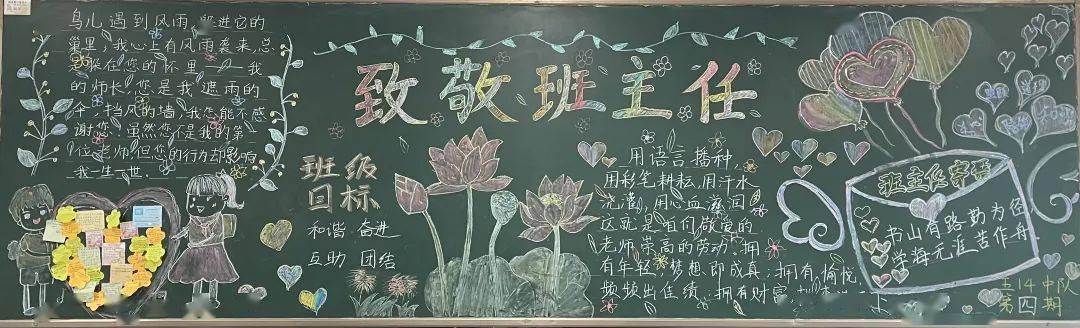 鸟儿遇到风雨,躲进它的
巢里;我心上有风雨袭来,总
是躲在您的怀里——我
的师长,您是我遮雨的
伞,挡风的墙,我怎能不感
谢您!虽然您不是我的第一
位老师,但您的行为却影响
我一生一世.
致敬班主任
班级
目标
和谐 奋进
互助 团结
用语言播种,
用彩笔耕耘,用汗水
浇灌,用心血滋润
这就是咱们敬爱的
老师崇高的劳动.拥
有年轻,梦想即成真;拥有愉悦,
频频出佳绩;拥有财富,
班主任寄语
书山有路勤为径
学海无涯苦作舟
五14中队
第四期